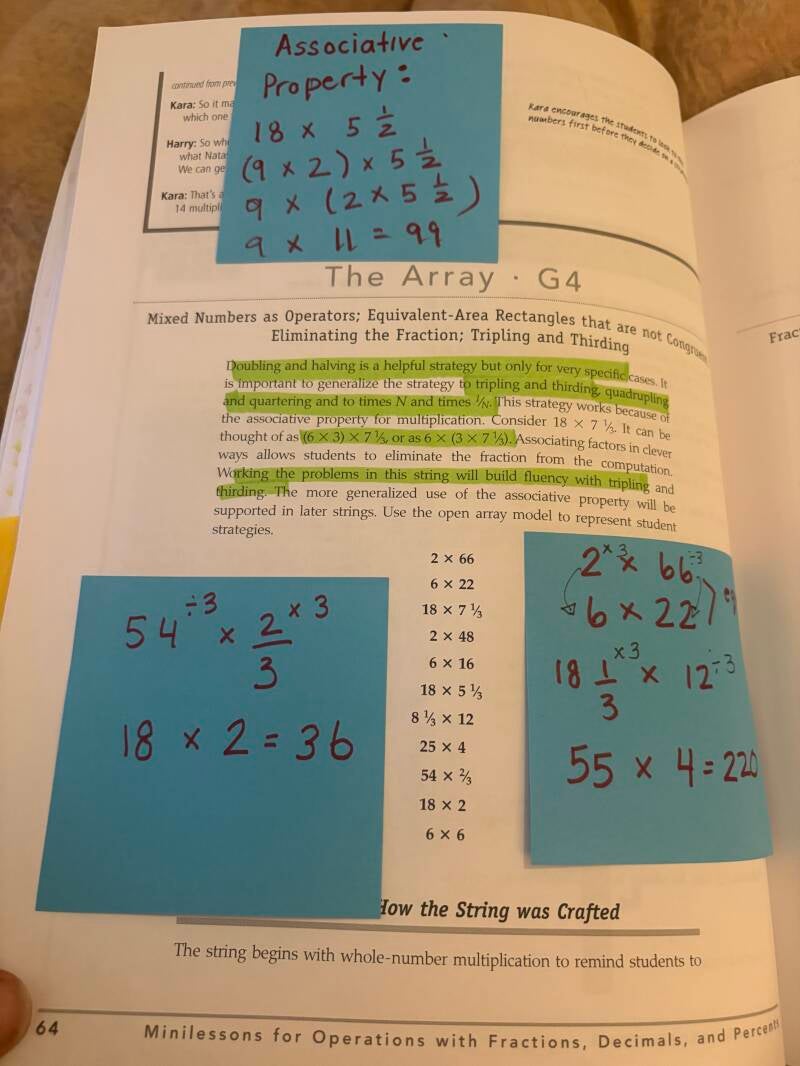 Associative
Property:
18 × 5 1/2
(9 × 2) × 5 1/2
9 × (2 × 5 1/2)
9 × 11 = 99
continued from
Kara: So it
which one
Harry: So
what
We can
Kara: That's
14
Kara encourages the students to look
numbers first before they decide on a
The Array · G4
Mixed Numbers as Operators; Equivalent-Area Rectangles that are not Congruent
Eliminating the Fraction; Tripling and Thirding
Doubling and halving is a helpful strategy but only for very specific cases. It
is important to generalize the strategy to tripling and thirding, quadrupling
and quartering and to times N and times 1/N. This strategy works because of
the associative property for multiplication. Consider 18 × 7 ⅓. It can be
thought of as (6 × 3) × 7 ⅓, or as 6 × (3 × 7 ⅓). Associating factors in clever
ways allows students to eliminate the fraction from the computation.
Working the problems in this string will build fluency with tripling and
thirding. The more generalized use of the associative property will be
supported in later strings. Use the open array model to represent student
strategies.
2 × 66
6 × 22
18 × 7 ⅓
2 × 48
6 × 16
18 × 5 ⅓
8 ⅓ × 12
25 × 4
54 × ⅔
18 × 2
6 × 6
54 ÷3 × 2/3 ×3
18 × 2 = 36
2 ×3 × 66 ÷3
6 × 22
18 1/3 ×3 × 12 ÷3
55 × 4 = 220
How the String was Crafted
The string begins with whole-number multiplication to remind students to
64
Minilessons for Operations with Fractions, Decimals, and Percents